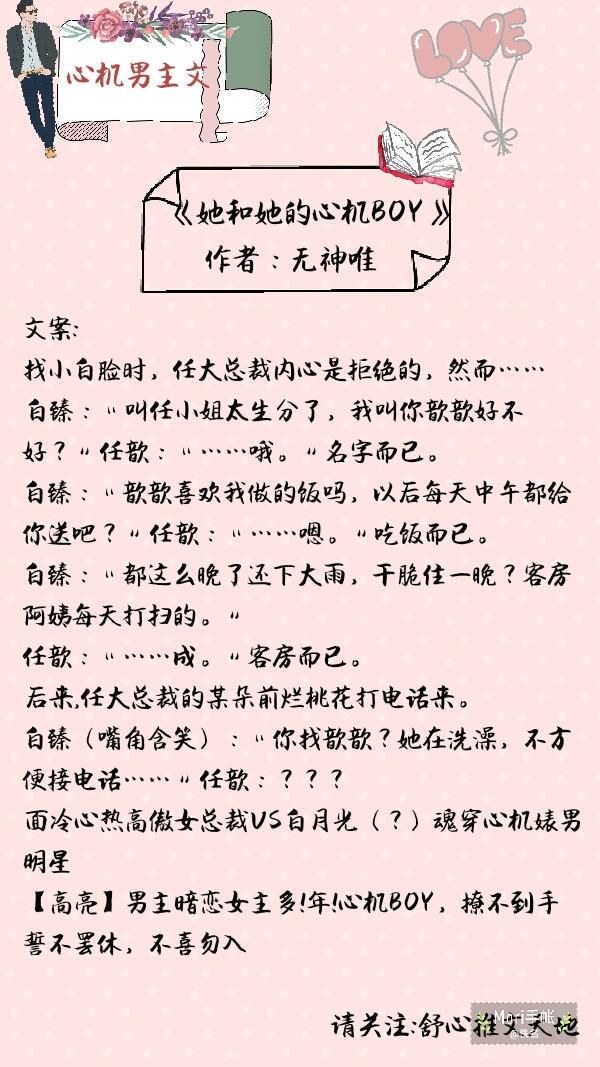 心机男主文
LOVE
《她和她的心机BOY》
作者：无神唯
文案:
找小白脸时，任大总裁内心是拒绝的，然而……
白臻：“叫任小姐太生分了，我叫你歆歆好不
好？”任歆：“……哦。”名字而已。
白臻：“歆歆喜欢我做的饭吗，以后每天中午都给
你送吧？”任歆：“……嗯。”吃饭而已。
白臻：“都这么晚了还下大雨，干脆住一晚？客房
阿姨每天打扫的。”
任歆：“……成。”客房而已。
后来,任大总裁的某朵前烂桃花打电话来。
白臻（嘴角含笑）：“你找歆歆？她在洗澡，不方
便接电话……”任歆：？？？
面冷心热高傲女总裁VS白月光（？）魂穿心机婊男
明星
【高亮】男主暗恋女主多!年!心机BOY，撩不到手
誓不罢休，不喜勿入
请关注:舒心推文天地
Mori手帐